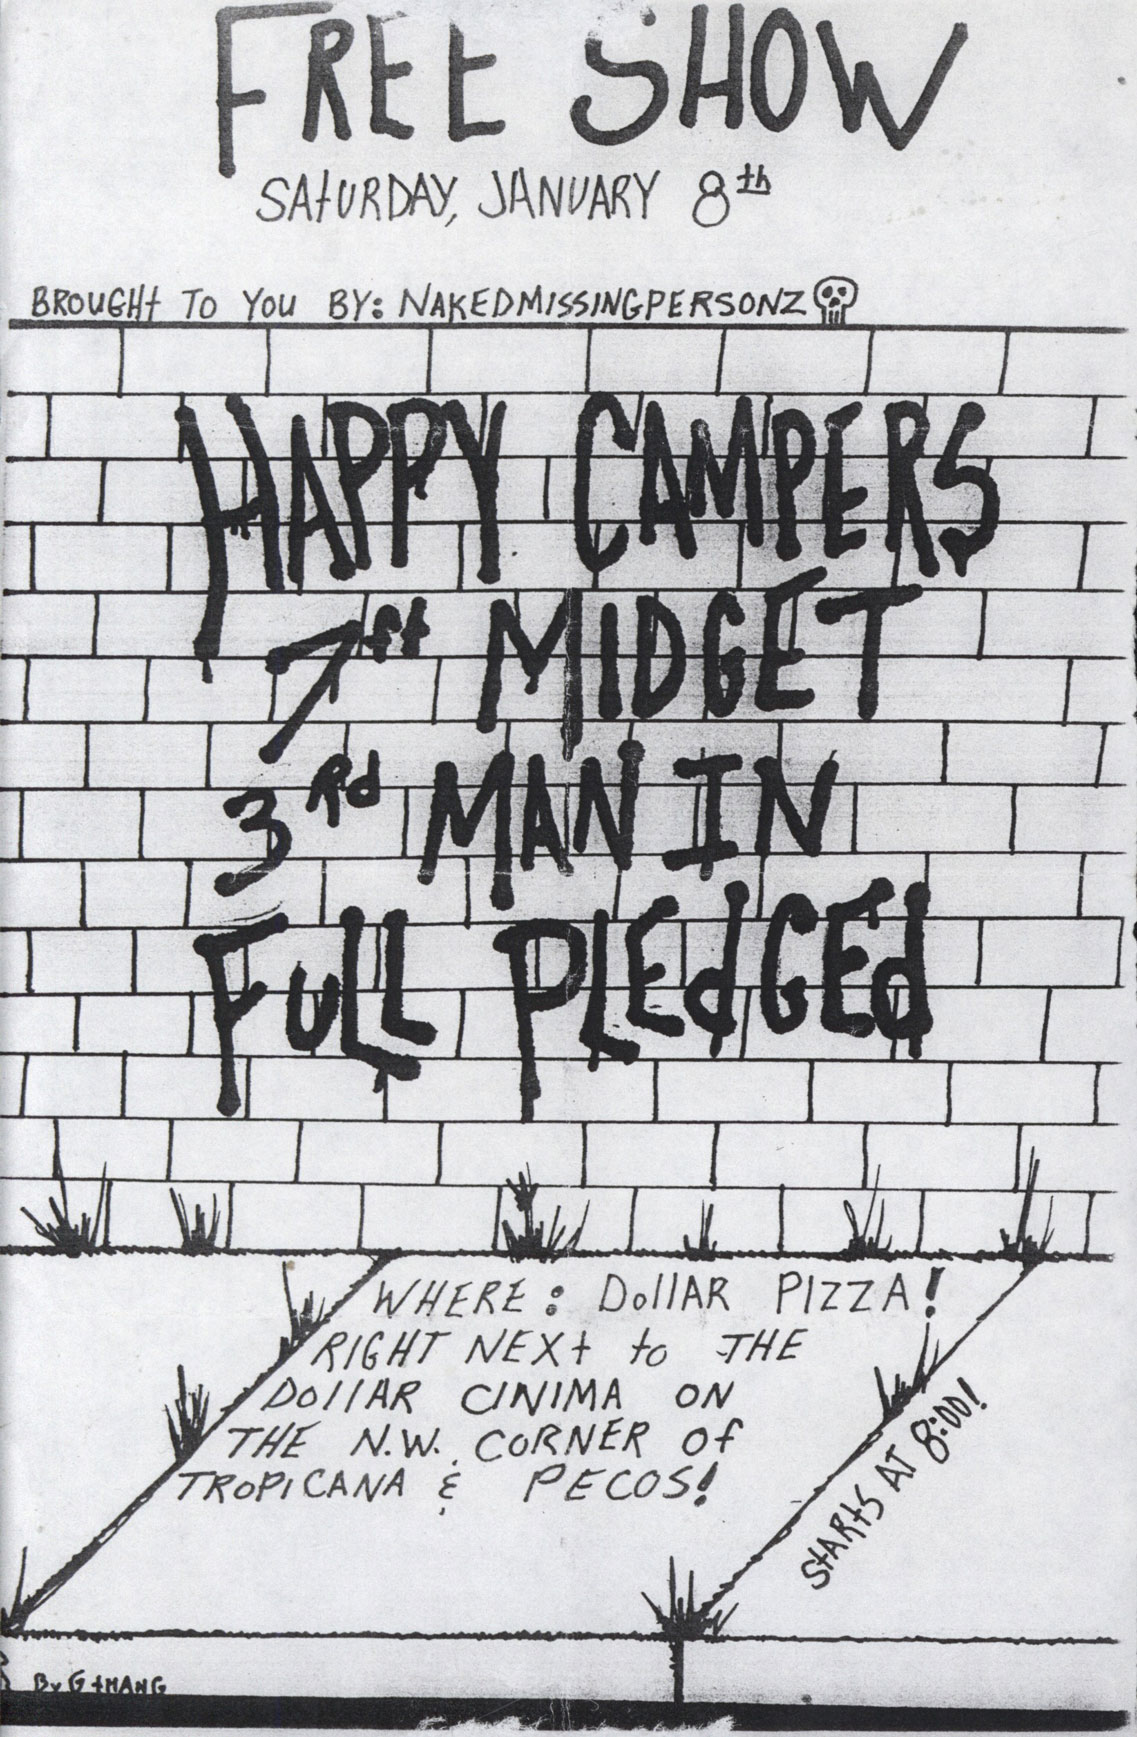 FREE SHOW
SATURDAY, JANUARY 8th
BROUGHT TO YOU BY: NAKEDMISSINGPERSONZ
HAPPY CAMPERS
7ft MIDGET
3rd MAN IN
FULL PLEDGED
WHERE: DOllAR PIZZA!
RIGHT NEXt to THE
DOllAR CINIMA ON
THE N.W. CORNER Of
TROPICANA & PECOS!
StARtS AT 8:00!
By G tHANG